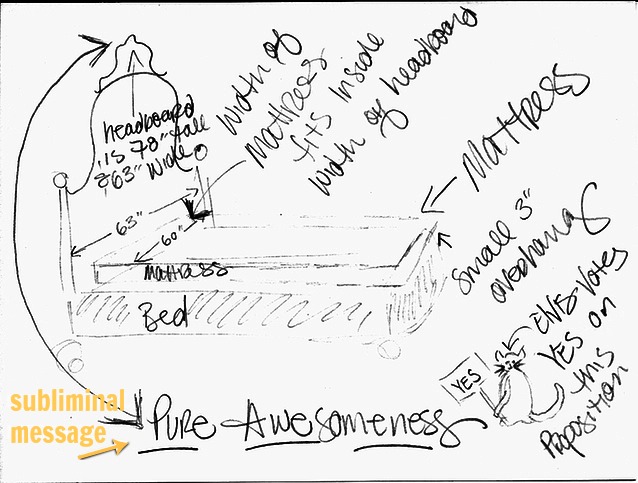 headboard
is 78" tall
& 63" wide
width of
mattress
fits inside
width of headboard
Mattress
small 3"
overhang
63"
60"
mattress
Bed
YES
Elvis votes
YES on
this
Proposition
subliminal
message
Pure Awesomeness